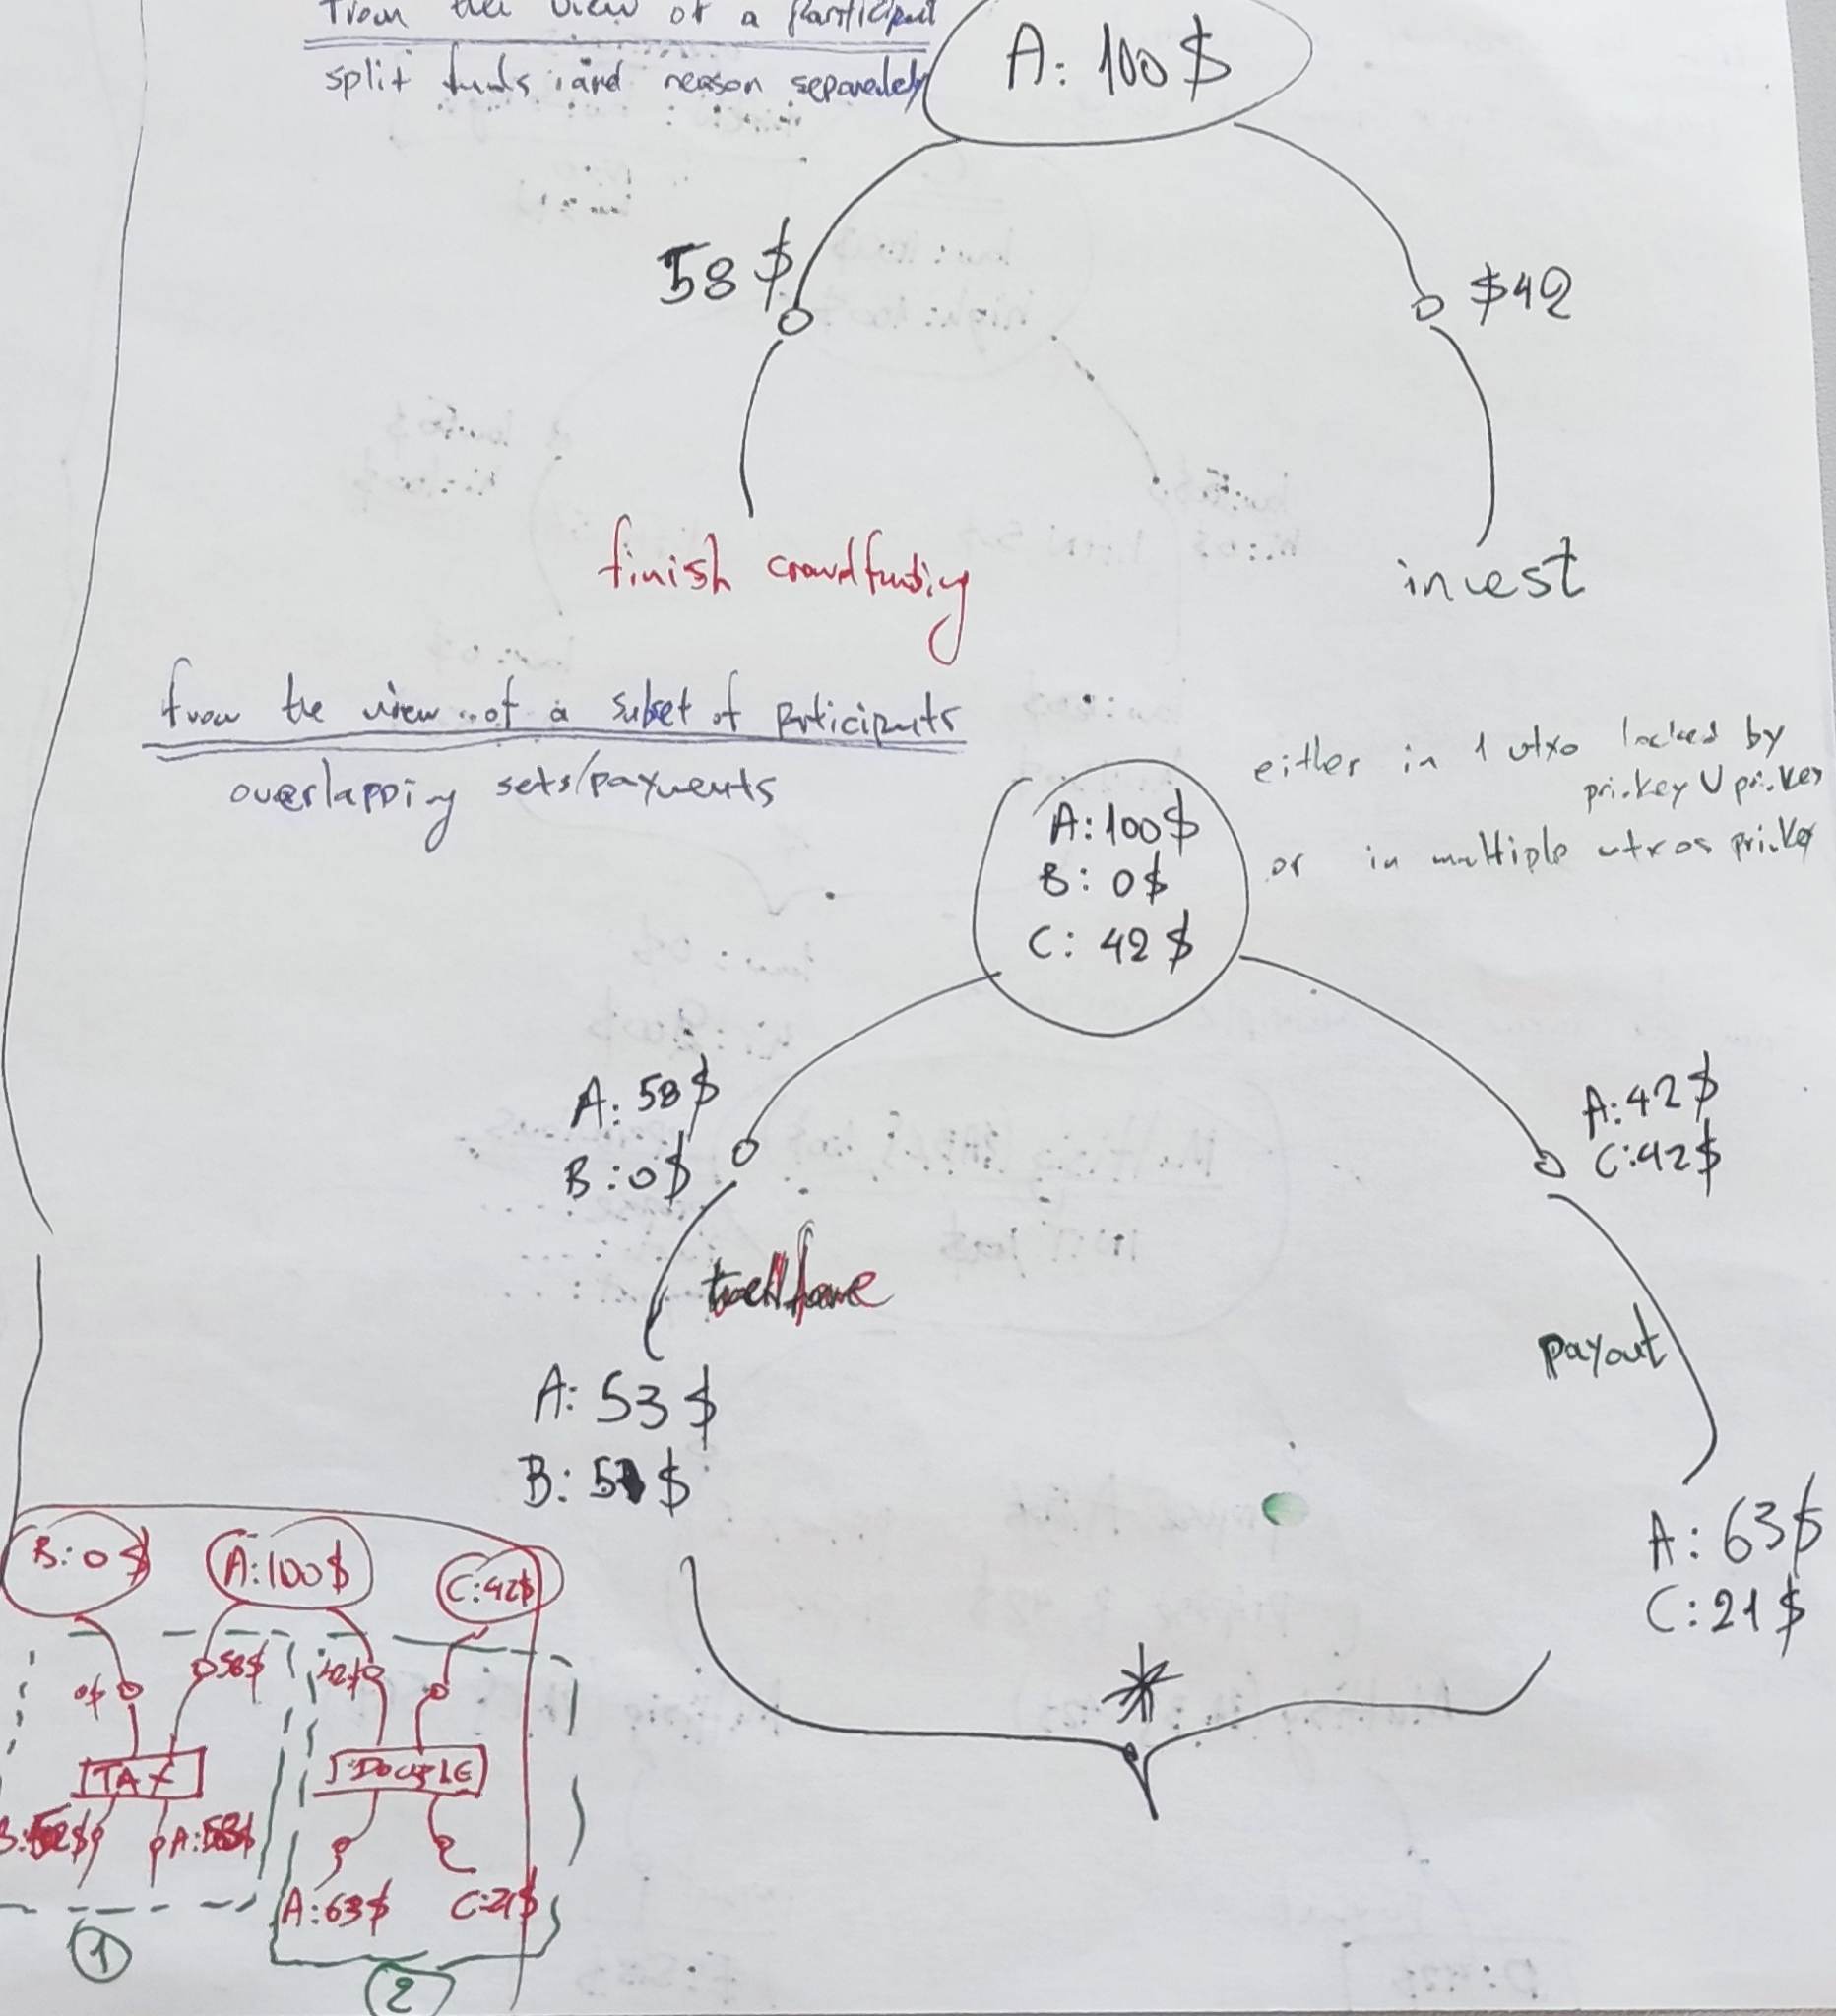 from the view of a participant
split funds and reason separately
A: 100 $
58 $
$42
finish crowdfunding
invest
from the view of a subset of participants
overlapping sets/payments
either in 1 utxo locked by
privkey U privkey
or in multiple utxos privkey
A: 100 $
B: 0 $
C: 42 $
A: 58 $
B: 0 $
A: 42 $
C: 42 $
payout
A: 53 $
B: 5 $
A: 63 $
C: 21 $
*
B: 0 $
A: 100 $
C: 42 $
0$
58$
42$
TAX
DOUPLE
A: 63 $
C: 21 $
1
2